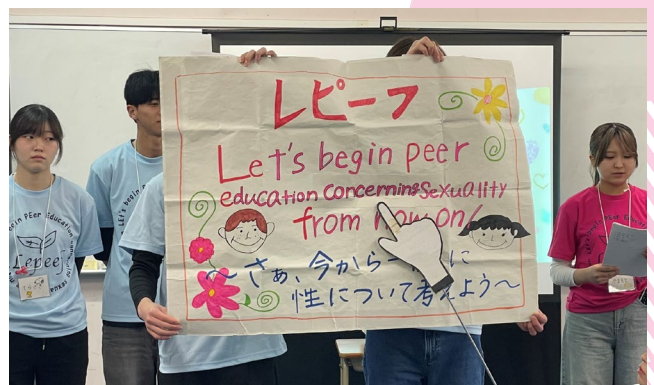 レピーフ
Let's begin peer
education Concerning Sexuality
from now on!
〜さぁ、今から
性について考えよう〜
Lepee
LEt's begin